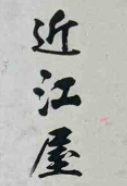 近江屋